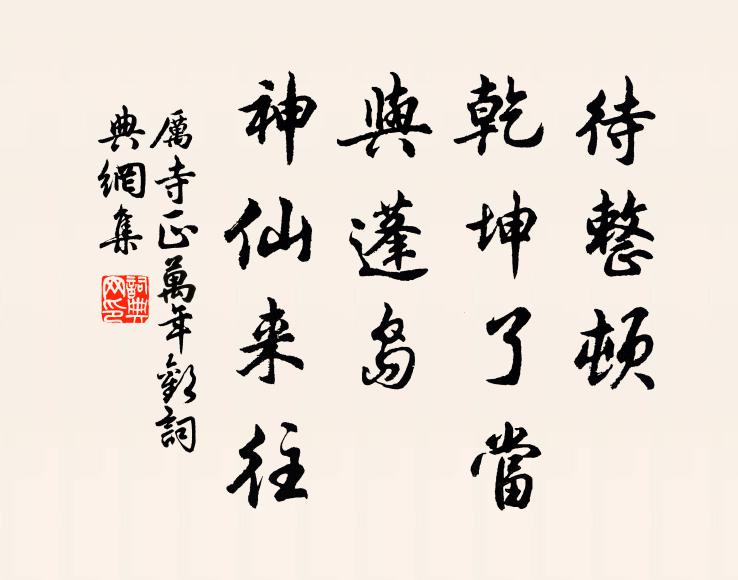 待整頓
乾坤了當
與蓬島
神仙来往
厲寺正萬年歡詞
典網集
詞典
网印